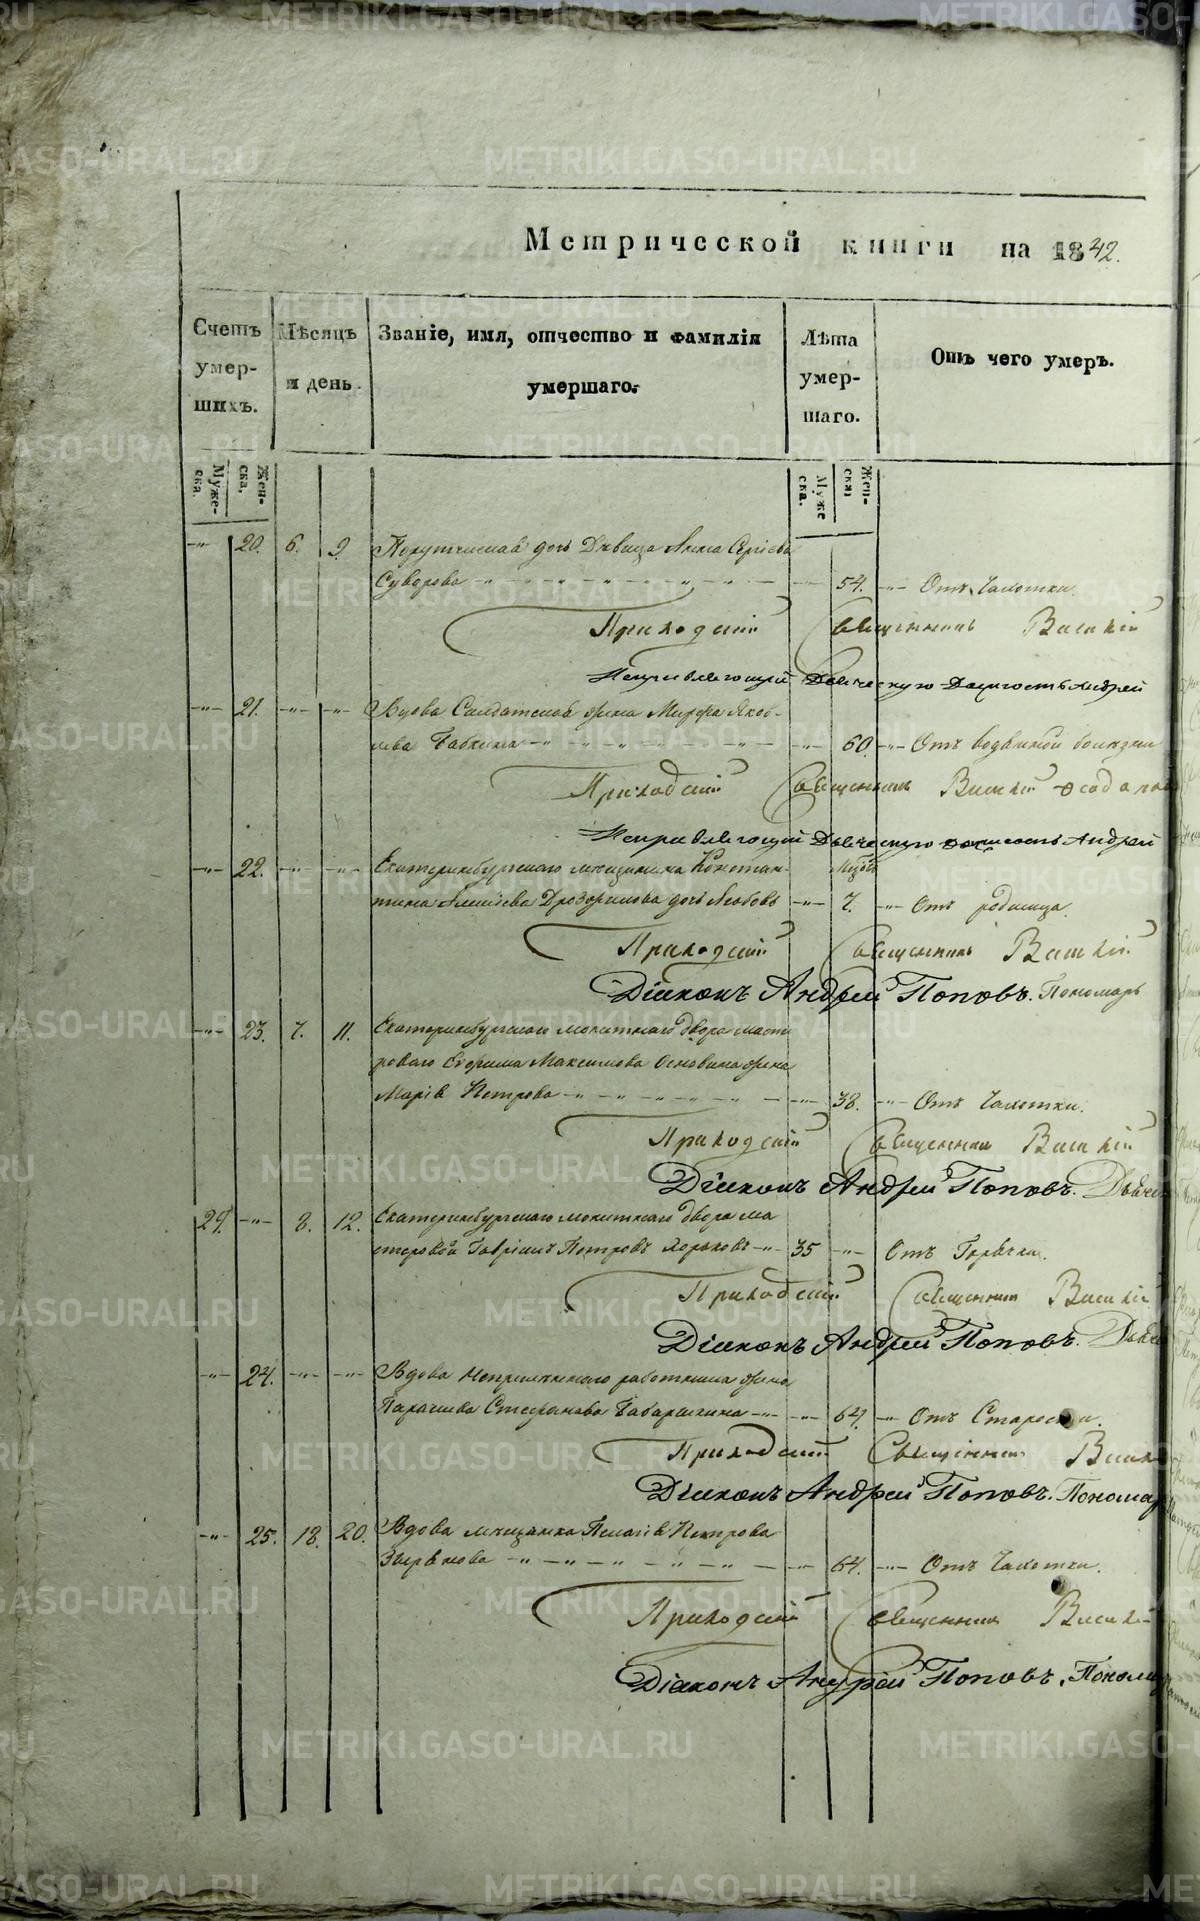 Метрической книги на 1842.
Счетъ умер- шихъ.
Мѣсяцъ и день
Званіе, имя, отчество и фамилія умершаго.
Лѣта умер- шаго.
Отъ чего умеръ.
Муже- ска.
Жен- ска.
Муже ска.
Жен- ски
20. 6. 9. дочь Дѣвица Анна Сергіева
Суворова 54. Отъ Чахотки.
Приходскій Священникъ Василій
Исправляющій Дьяческую Должность Андрей
21. Вдова Солдатская жена Марфа Яков-
лева Бабкина 60. Отъ водяной болѣзни
Приходскій Священникъ Василій
Исправляющій Дьяческую должность Андрей
22. Екатеринбургскаго мѣщанина Констан-
тина дочь Любовь 7. Отъ родимца.
Приходскій Священникъ Василій
Діаконъ Андрей Поповъ. Пономарь
23. 7. 11. Екатеринбургскаго монетнаго двора масте
роваго Максимова жена
Марія Петрова 38. Отъ Чахотки.
Приходскій Священник Василій
Діаконъ Андрей Поповъ.
8. 12. Екатеринбургскаго монетнаго двора ма
стеровой Гаврiилъ Петровъ Хорьковъ 35 Отъ Горячки.
Приходскій Священник Василій
Діаконъ Андрей Поповъ.
24. Вдова работника жена
Стефанова 64. Отъ Старости.
Приходскій Священник
Діаконъ Андрей Поповъ.
25. 18. 20. Вдова мѣщанка Пелагія Петрова
64. Отъ Чахотки.
Приходскій Священник
Діаконъ Андрей Поповъ.
METRIKI.GASO-URAL.RU